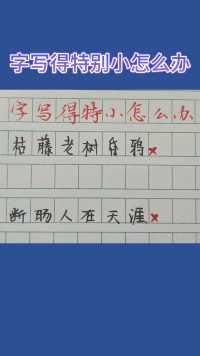 字写得特别小怎么办
字写得特小怎么办
枯藤老树昏鸦×
断肠人在天涯×